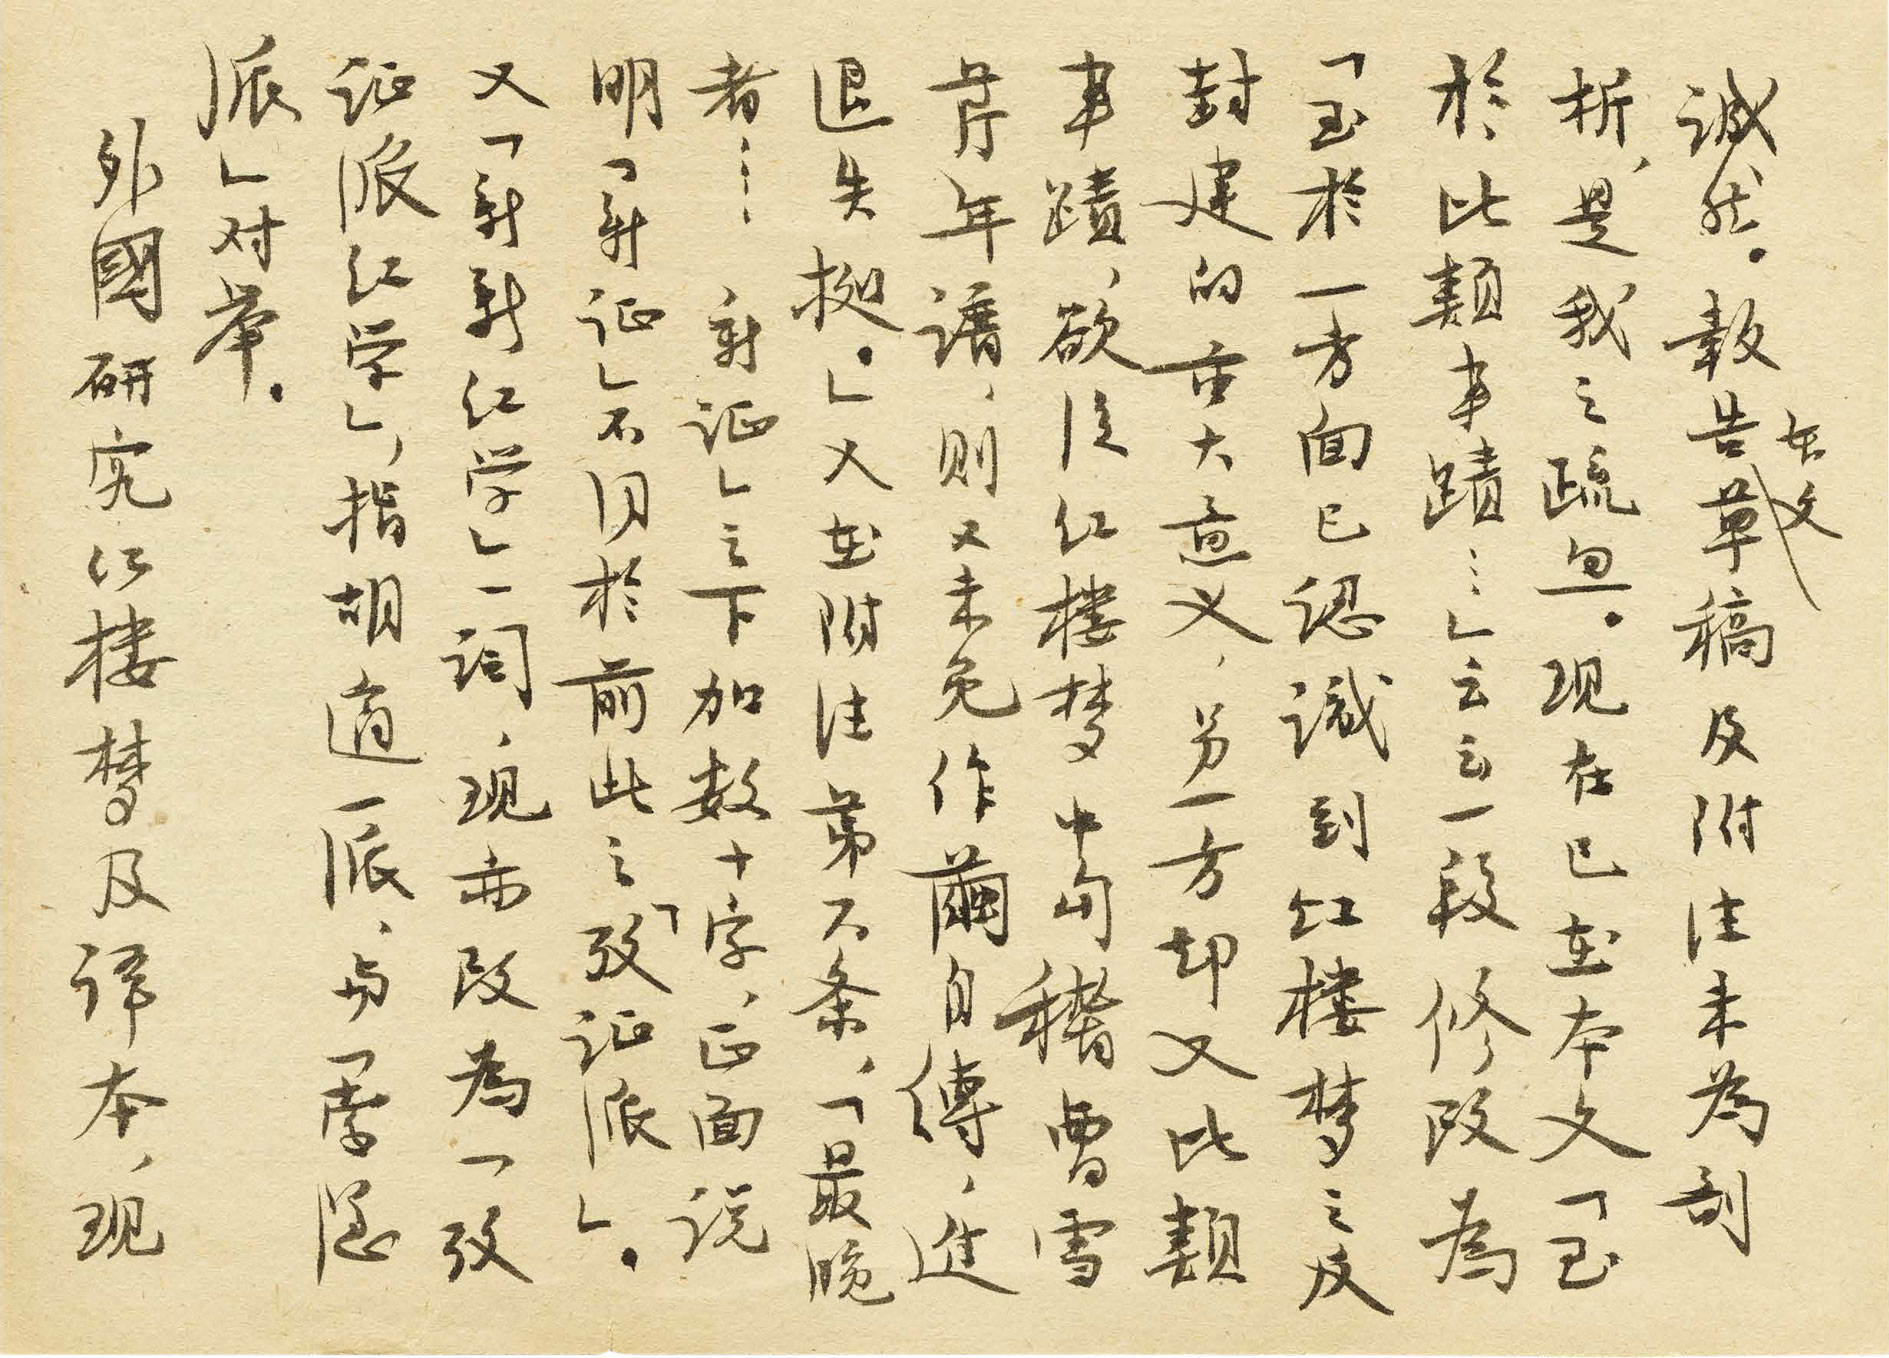 诚然。報告草稿及附注未為剖
析,是我之疏忽。现在已在本文「至
於此類事蹟…」云云一段修改為
「至於一方面已認識到红楼梦之反
封建的重大意义,另一方却又比類
事蹟,欲從红楼梦中勾稽曹雪
芹年譜,則又未免作繭自縛,進
退失據。」又在附注第六条,「最晚
者…,新证」之下加数十字,正面说
明「新证」不同於前此之「攷证派」。
又「新新红学」一词,现亦改為「攷
证派红学」,指胡適一派,与「索隐
派」对举。
外國研究红楼梦及译本,现